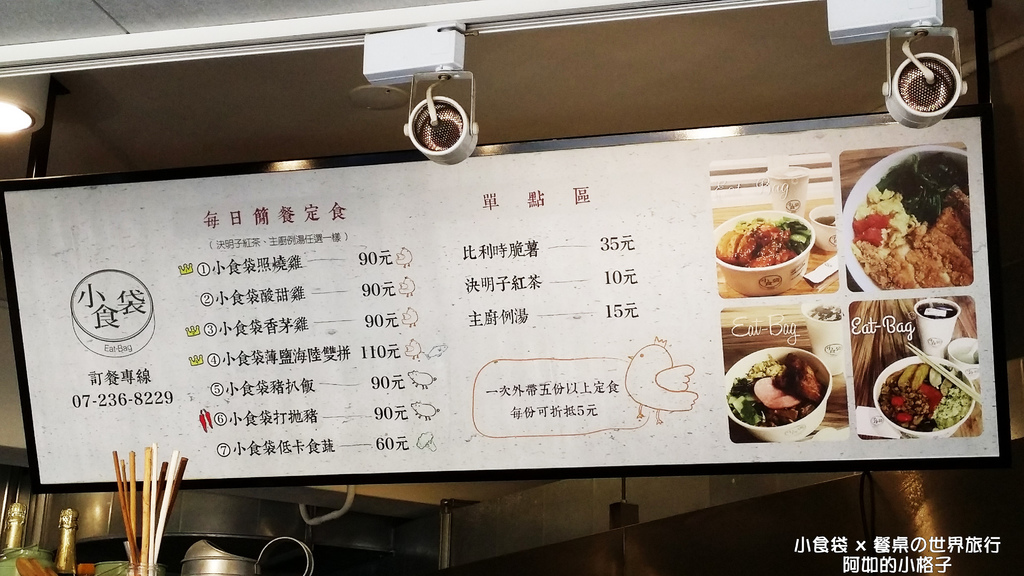 小食袋
Eat-Bag
訂餐專線
07-236-8229
每日簡餐定食
(決明子紅茶、主廚例湯任選一樣)
①小食袋照燒雞 90元
②小食袋酸甜雞 90元
③小食袋香茅雞 90元
④小食袋薄鹽海陸雙拼 110元
⑤小食袋豬扒飯 90元
⑥小食袋打拋豬 90元
⑦小食袋低卡食蔬 60元
單點區
比利時脆薯 35元
決明子紅茶 10元
主廚例湯 15元
一次外帶五份以上定食
每份可折抵5元
Eat-Bag
Eat-Bag
小食袋 x 餐桌の世界旅行
阿如的小格子